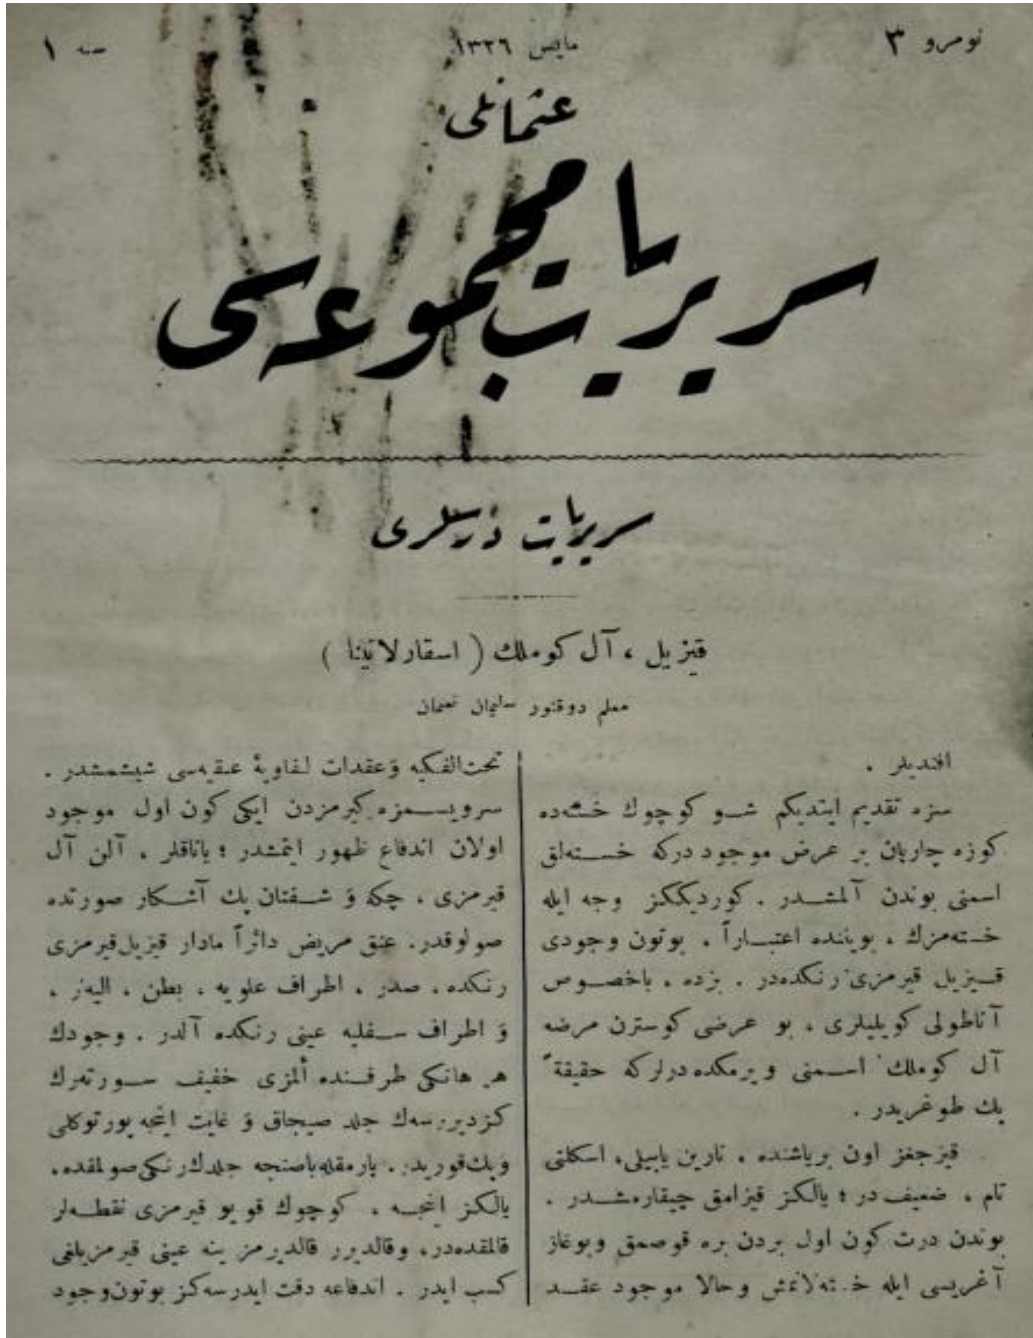 نومرو ٣
مايس ١٣٢٦
سنه ١
عثمانلى
سريريات مجموعه‌سى
سريريات درسلرى
قيزيل ، آل كوملك ( اسقارلاتينا )
معلم دوقتور سليمان نعمان
افنديلر .
سزه تقديم ايتديكم شو كوچوك خسته‌ده
كوزه چارپان بر عرض موجود دركه خسته‌لق
اسمنى بوندن آلمشدر . كورديككز وجه ايله
خسته‌مزك ، بوياننده اعتباراً ، بوتون وجودى
قيزيل قيرمزى رنكده‌در . بزده ، باخصوص
آناطولى كويليلرى ، بو عرضى كوسترن مرضه
آل كوملك اسمنى ويرمكده درلركه حقيقةً
پك طوغريدر .
قيزجغز اون برياشنده ، نارين ياپيلى ، اسكلتى
تام ، ضعيف در ؛ يالكز قيزامق چيقارمشدر .
بوندن درت كون اول بردن بره قوصمق وبوغاز
آغريسى ايله خسته‌لانمش وحالا موجود عقد
تحت‌الفكيه و عقدات لنفاويهٔ عنقيه‌سى شيشمشدر .
سرويسمزه كيرمزدن ايكى كون اول موجود
اولان اندفاع ظهور ايتمشدر ؛ ياناقلر ، آلن آل
قيرمزى ، چكه و شفتان پك آشكار صورتده
صولوقدر . عنق مريض دائراً مادار قيزيل قيرمزى
رنكده ، صدر ، اطراف علويه ، بطن ، اليه‌لر ،
و اطراف سفليه عينى رنكده آلدر . وجودك
هر هانكى طرفنده ألمزى خفيف سورته‌رك
كزديررسه‌ك جلد صيجاق و غايت اينجه پورتوكلى
وپك قوريدر . پارمقله باصنجه جلدك رنكى صولمقده ،
يالكز اينجه ، كوچوك قويو قيرمزى نقطه‌لر
قالمقده‌در ، وقالديرر قالديرمز ينه عينى قيرمزيلغى
كسب ايدر . اندفاعه دقت ايدرسه‌كز بوتون وجود